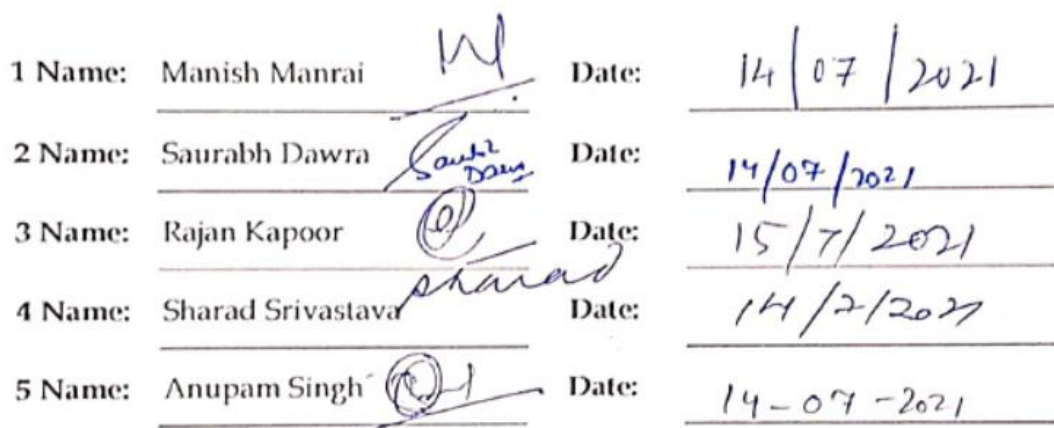 1 Name: Manish Manrai Date: 14/07/2021
2 Name: Saurabh Dawra Saurabh Dawra Date: 14/07/2021
3 Name: Rajan Kapoor Date: 15/7/2021
4 Name: Sharad Srivastava Sharad Date: 14/7/2021
5 Name: Anupam Singh Date: 14-07-2021